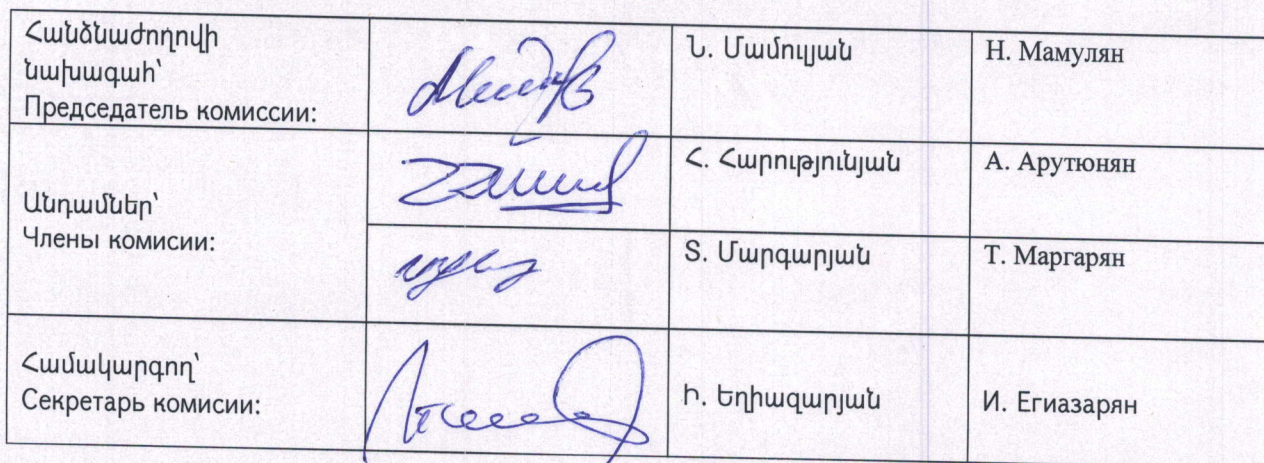 Հանձնաժողովի
նախագահ՝
Председатель комиссии:
Ն. Մամուլյան
Н. Мамулян
Անդամներ՝
Члены комисии:
Հ. Հարությունյան
А. Арутюнян
Տ. Մարգարյան
Т. Маргарян
Համակարգող՝
Секретарь комисии:
Ի. Եղիազարյան
И. Егиазарян